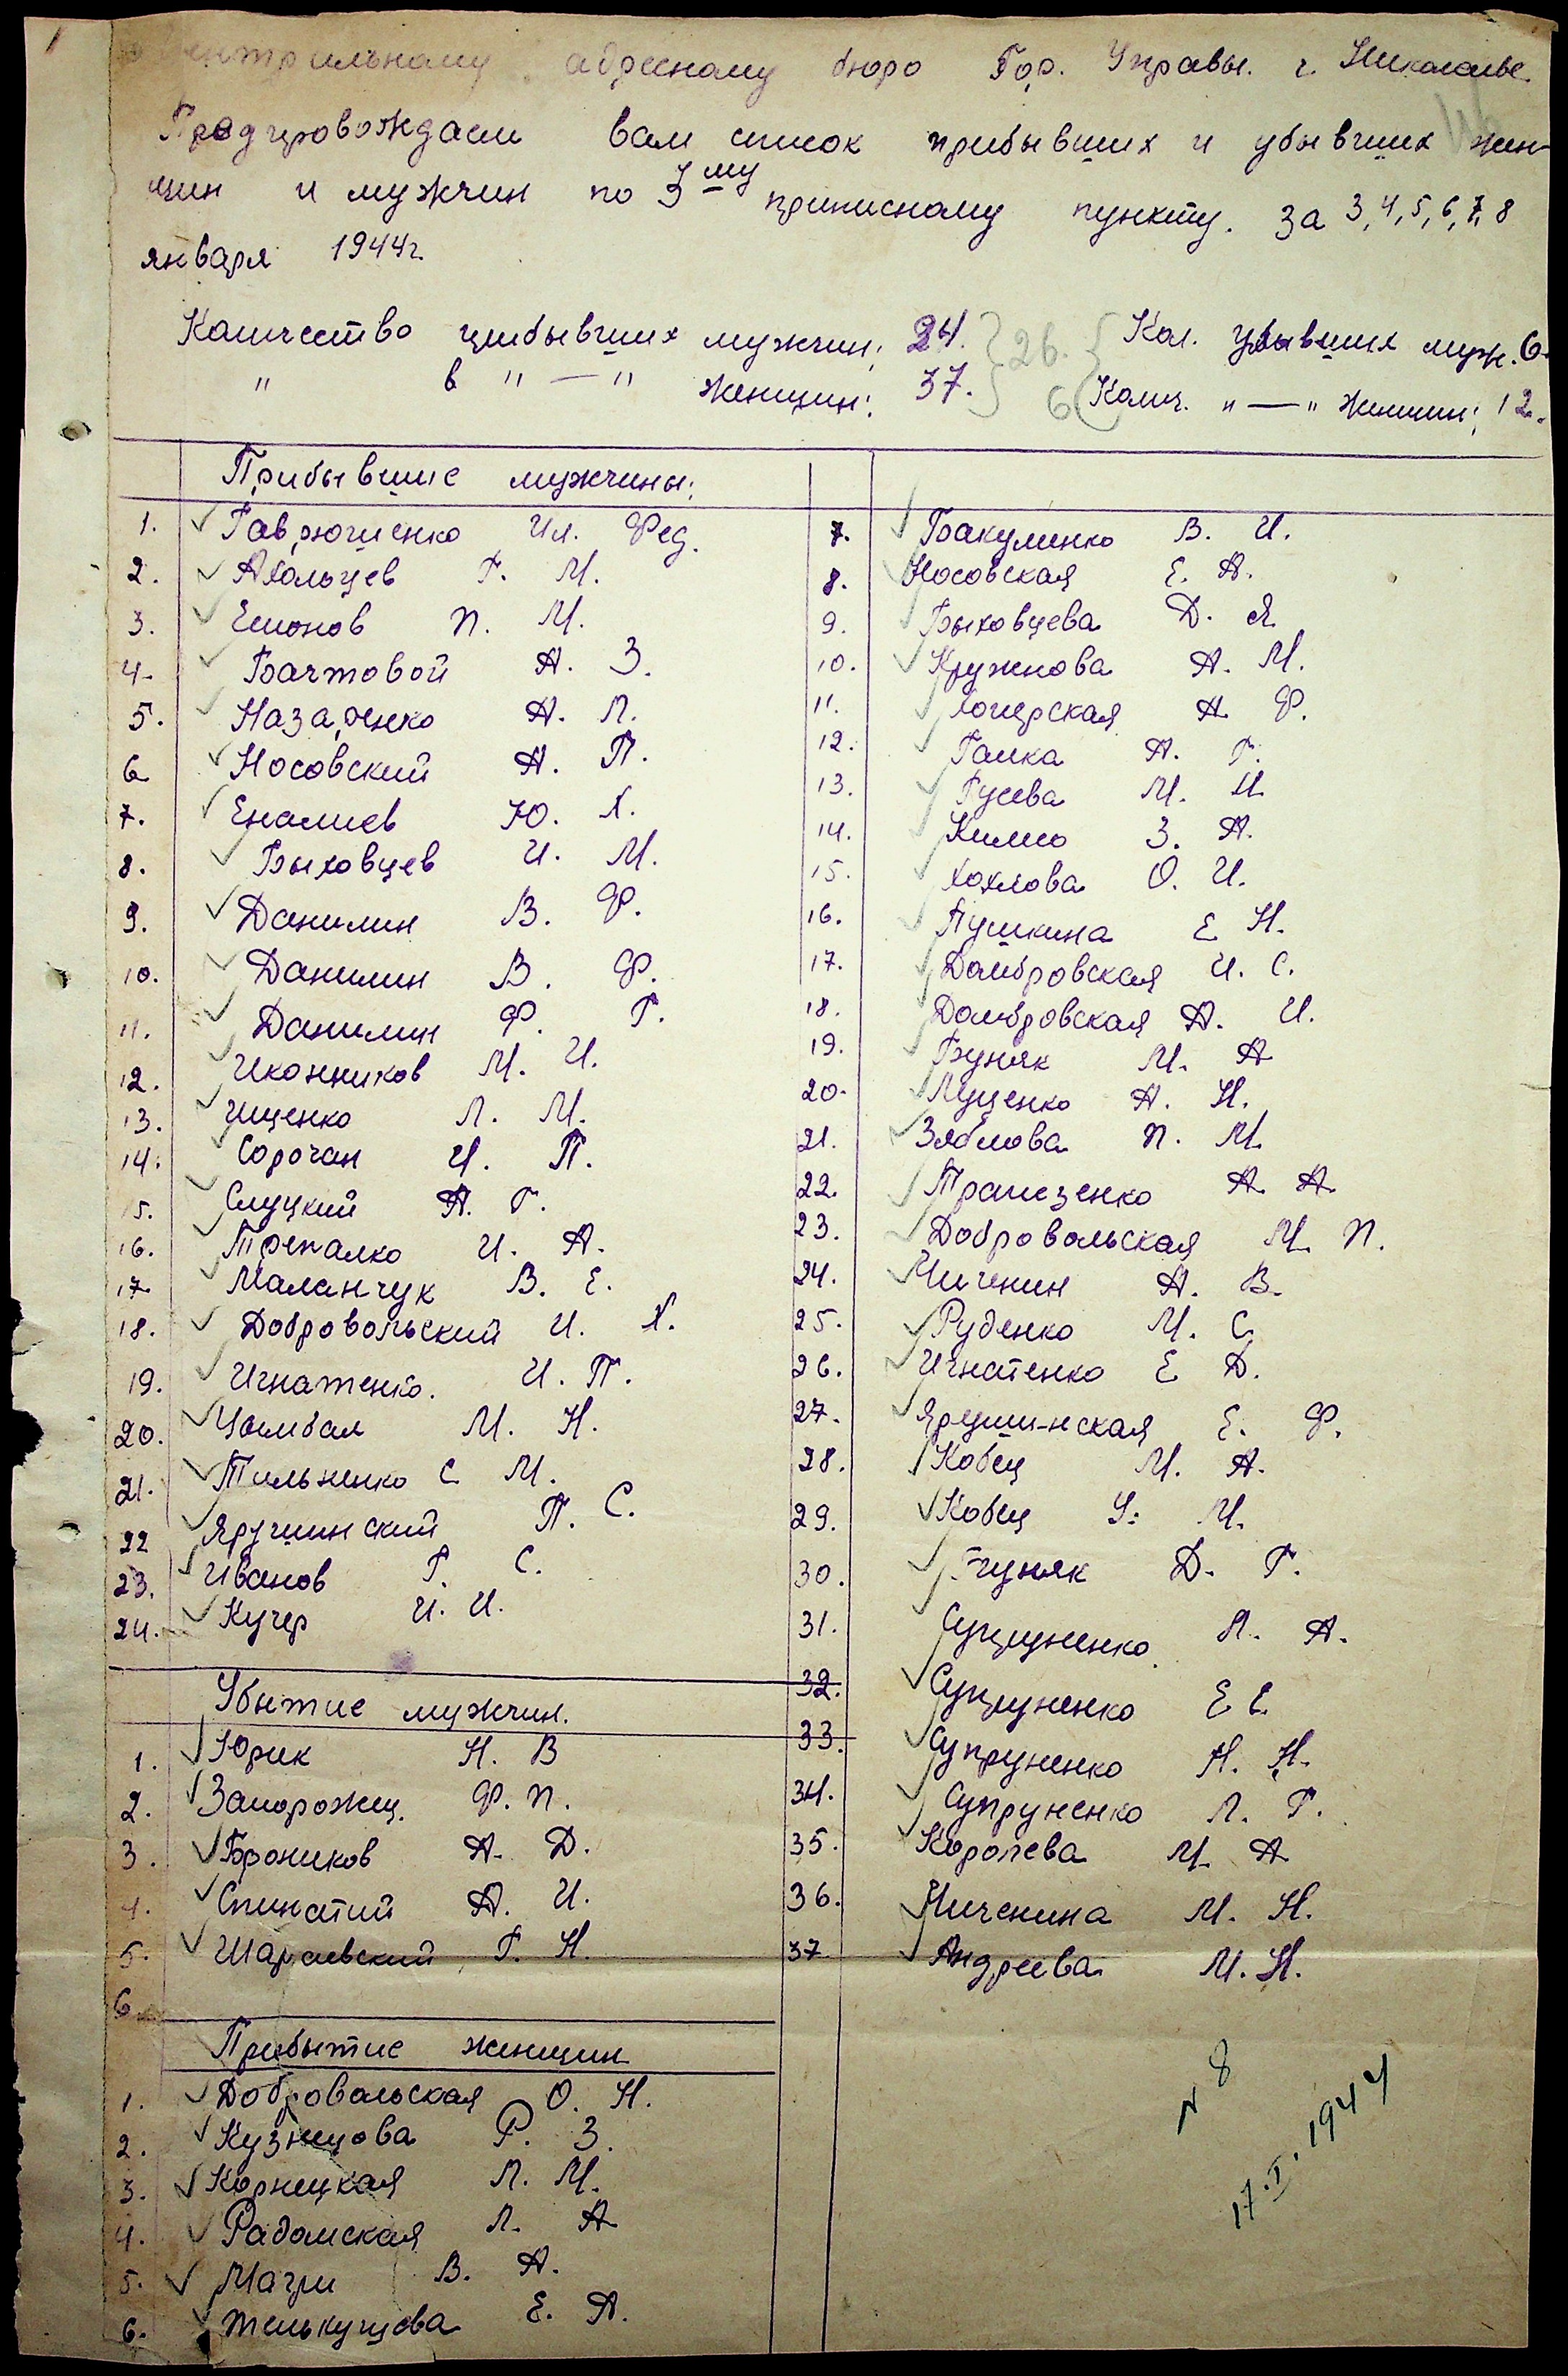 Центральному адресному бюро Гор. Управы. г. Николаеве.
Предпровождаем вам список прибывших и убывших жен-
щин и мужчин по 3му приписному пункту. за 3, 4, 5, 6, 7, 8
января 1944г.
Количество прибывших мужчин: 24. 26. Кол. убывших муж. 6.
" в " — " женщин: 37. 6 Колич. " — " женщин: 12.
Прибывшие мужчины:
1. Гаврюшенко Ил. Фед.
2. Ахольцев Г. М.
3. Емонов П. М.
4. Бачтовой А. З.
5. Назаренко А. Л.
6 Носовский А. П.
7. Еналиев Ю. Х.
8. Быховцев И. М.
9. Данилин В. Ф.
10. Данилин В. Ф.
11. Данилин Ф. Г.
12. Иконников М. И.
13. Ищенко Л. М.
14. Сорочан И. П.
15. Слуцкий А. Г.
16. Трепалко И. А.
17. Маланчук В. Е.
18. Добровольский И. Х.
19. Игнатенко. И. П.
20. Цымбал М. Н.
21. Тильненко С М.
22 Ярушинский П. С.
23. Иванов Г. С.
24. Кучер И. И.
Убытие мужчин.
1. Юрик Н. В
2. Запорожец. Ф. П.
3. Броников А. Д.
4. Спинатий А. И.
5. Шараевский Г. Н.
6
Прибытие женщин
1. Добровольская О. Н.
2. Кузнецова Р. З.
3. Корнецкая Л. М.
4. Радомская Л. А
5. Мацри В. А.
6. Желькутцова Е. А.
7. Бакуменко В. И.
8. Носовская Е. А.
9. Быховцева Д. Я.
10. Кружнова А. М.
11. А Ф.
12. Галка А. Г.
13. Гусева М. И
14. Килио З. А.
15. Хохлова О. И.
16. Пушкина Е Н.
17. Домбровская И. С.
18. Домбровская А. И.
19. Буняк М. А
20. Луценко А. Н.
21. Зяблова П. М.
22. Трапезенко А. А.
23. Добровольская М. П.
24. Чиченин А. В.
25. Руденко М. С.
26. Игнатенко Е Д.
27. Ярушинская Е. Ф.
28. Кобец М. А.
29. Кобец У. М.
30. Гуняк Д. Г.
31. Супруненко Л. А.
32. Супруненко Е Е.
33. Супруненко Н. Н.
34. Супруненко Л. Г.
35. Королева М. А
36. Чиченина М. Н.
37 Андреева М. Н.
N 8
17. I. 1944